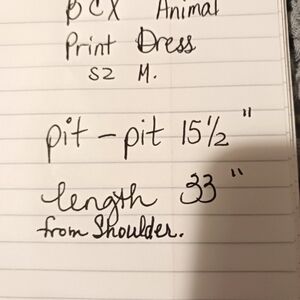 BCX Animal
Print Dress
SZ M.
pit - pit 15½"
length 33"
from Shoulder.